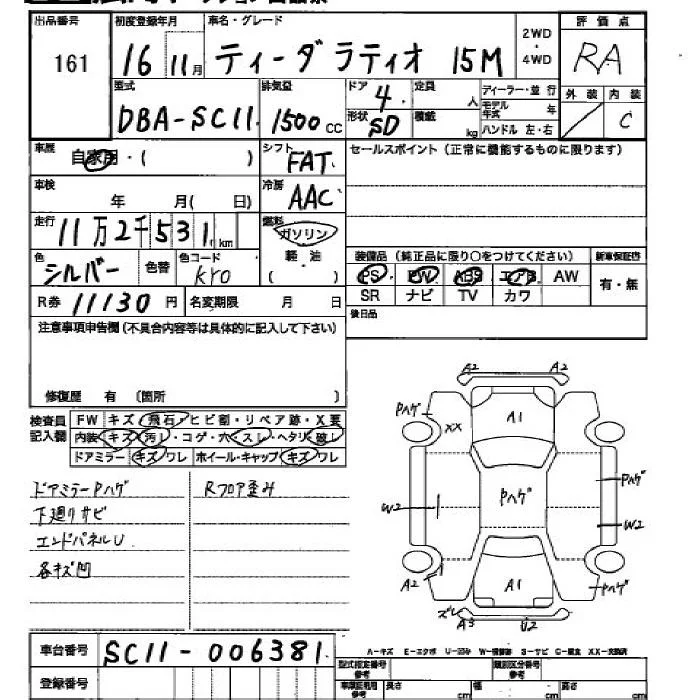 出品番号 初度登録年月 車名・グレード 2WD・4WD 評価点
161 16 11月 ティーダ ラティオ 15M RA
型式 排気量 ドア 4 定員 人 ディーラー・並行 外装 内装
DBA-SC11 1500cc 形状 SD 積載 kg モデル年式 年 C
ハンドル 左・右
車歴 自家用・( ) シフト FAT セールスポイント(正常に機能するものに限ります)
車検 年 月( 日) 冷房 AAC
走行 11万2千531km 燃料 ガソリン
軽・油
( )
色 シルバー 色替 色コード KY0
装備品(純正品に限り○をつけてください) 新車保証書
PS PW ABS エアB AW 有・無
SR ナビ TV カワ
R券 11130円 名変期限 月 日 後日品
注意事項申告欄(不具合内容等は具体的に記入して下さい)
修復歴 有 〔箇所 〕
検査員記入欄 FW キズ・飛石・ヒビ割・リペア跡・X要
内装 キズ・汚し・コゲ・穴・スレ・ヘタリ・破し
ドアミラー キズ・ワレ ホイール・キャップ キズ・ワレ
ドアミラーPハゲ Rフロア歪み
下廻りサビ
エンドパネルU
各キズ凹
A2 A2
Pハゲ A1
XX
Pハゲ Pハゲ
W2 W2
A2 A1 Pハゲ
ズレ A3 U2
A-キズ E-エクボ U-凹み W-補修跡 S-サビ C-腐食 XX-交換済
車台番号 SC11-006381
型式指定番号 参考 類別区分番号 参考
登録番号 車検証記載 参考 長さ cm 幅 cm 高さ cm